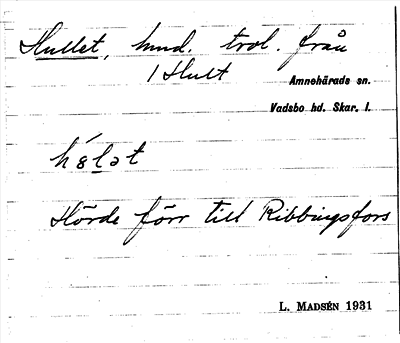 Hullet, hmd. trol. från
1 Hult
Amnehärads sn.
Vadsbo hd. Skar. l.
Hörde förr till Ribbingsfors
L. MADSÉN 1931